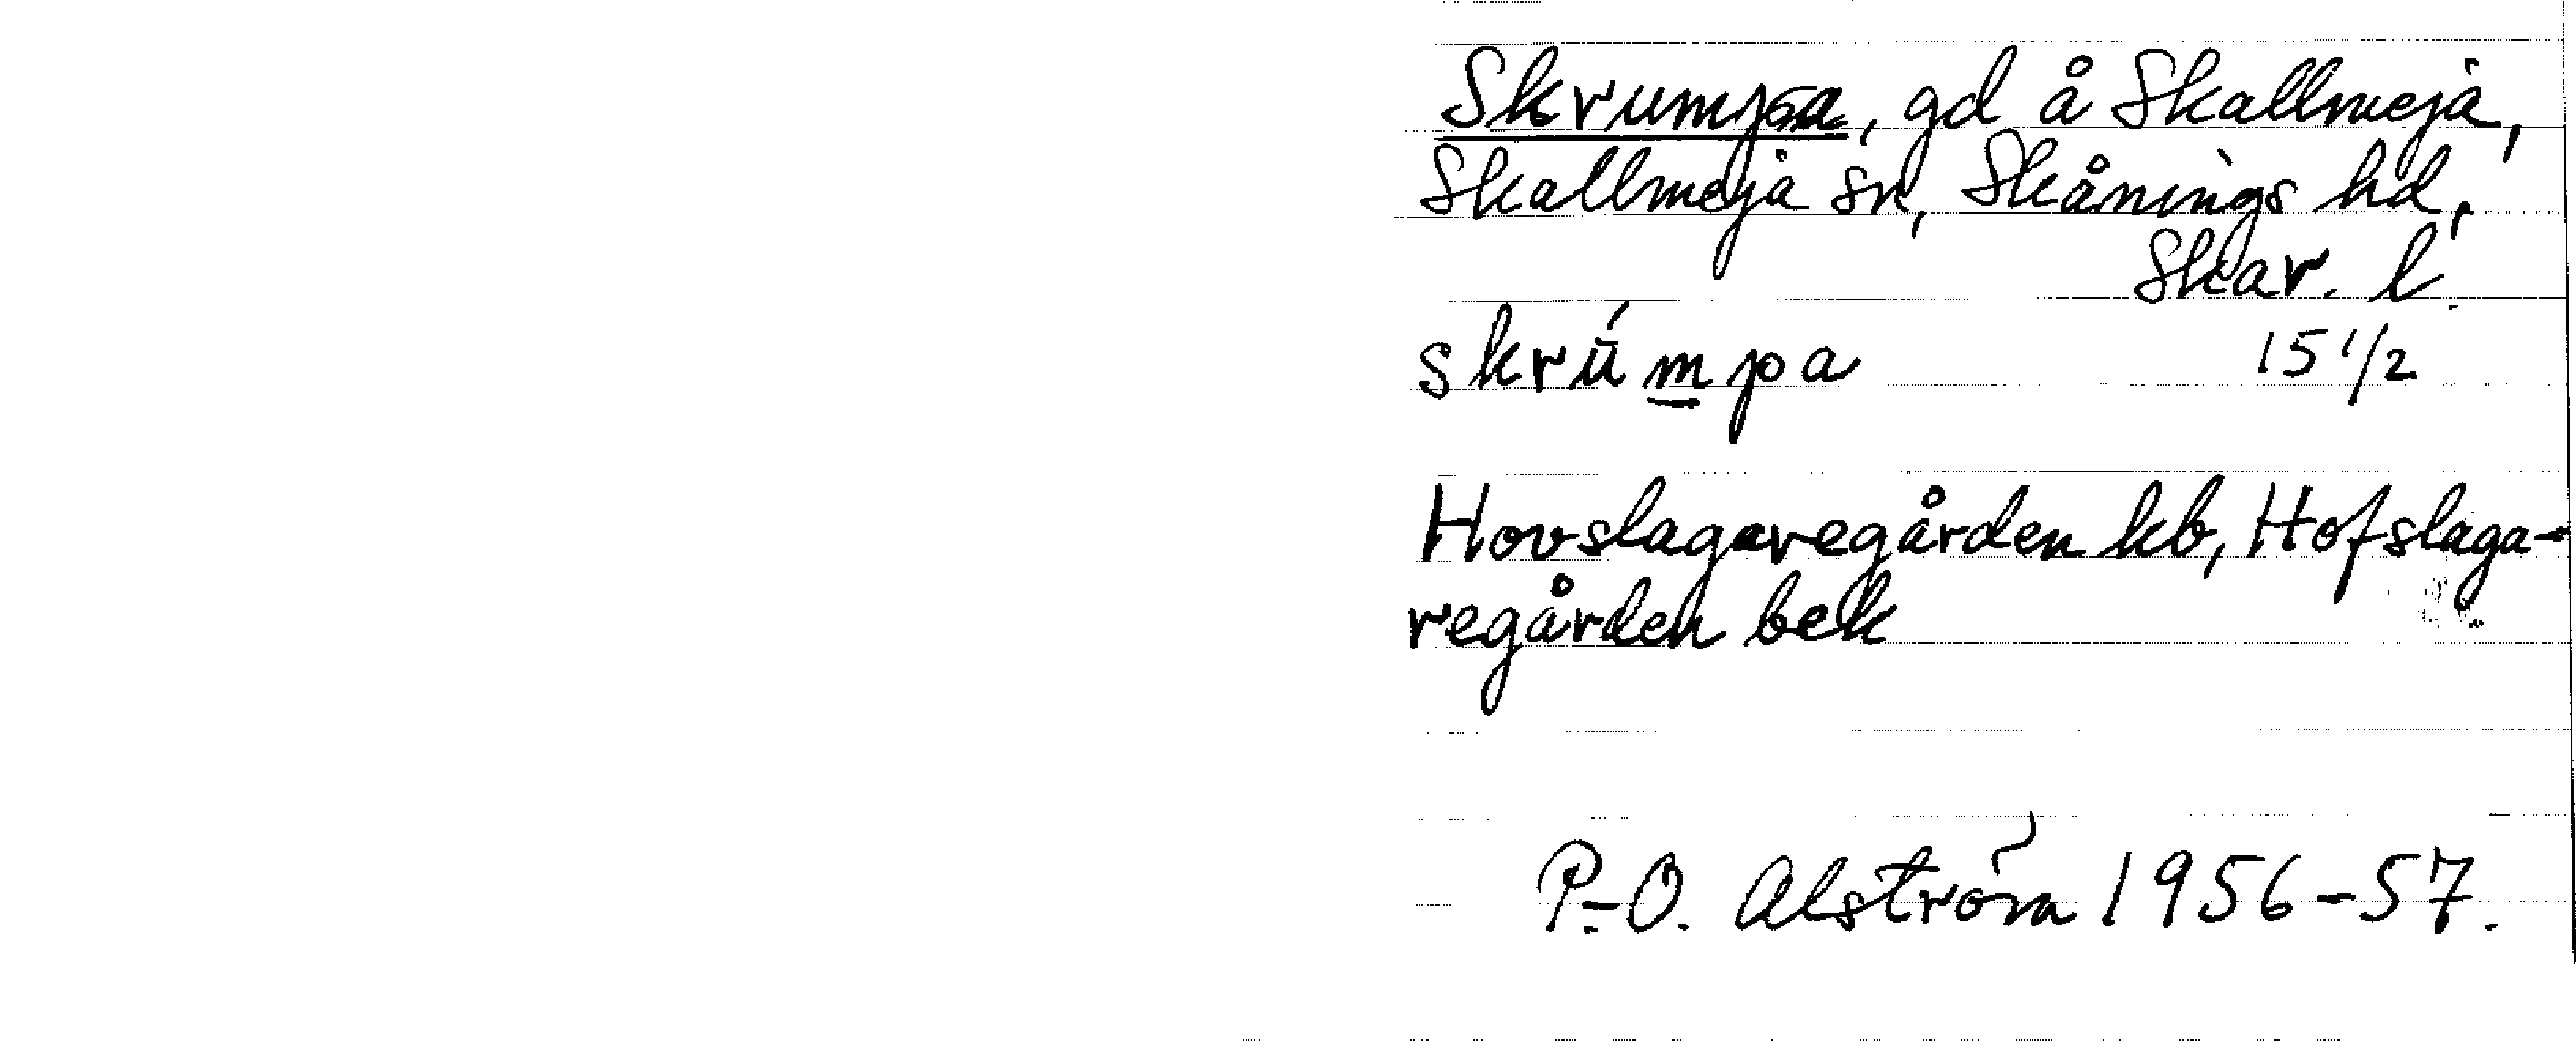 Skrumpa, gd å Skallmeja,
Skallmeja sn, Skånings hd,
Skar. l.
skrúmpa 15 1/2
Hovslagaregården kb, Hofslaga-
regården bek
P.-O. Alström 1956-57.